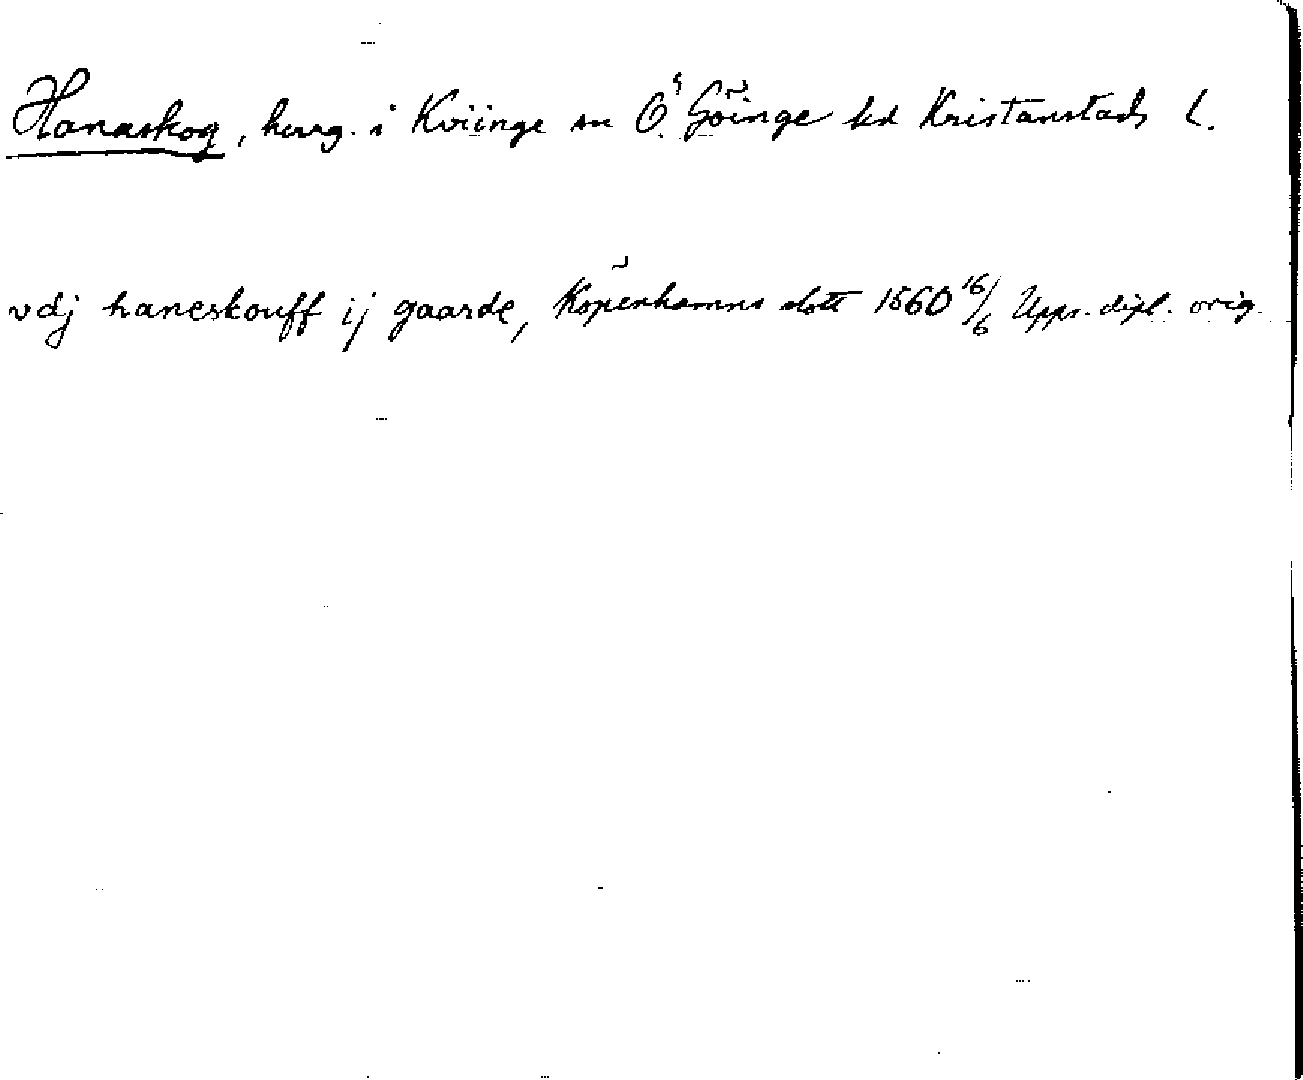 Hanaskog, herrg. i Kviinge sn Ö. Göinge hd Kristianstads l.
vdj haneskouff ij gaarde, Köpenhamns slott 1560 16/6 Upps. dipl. orig.